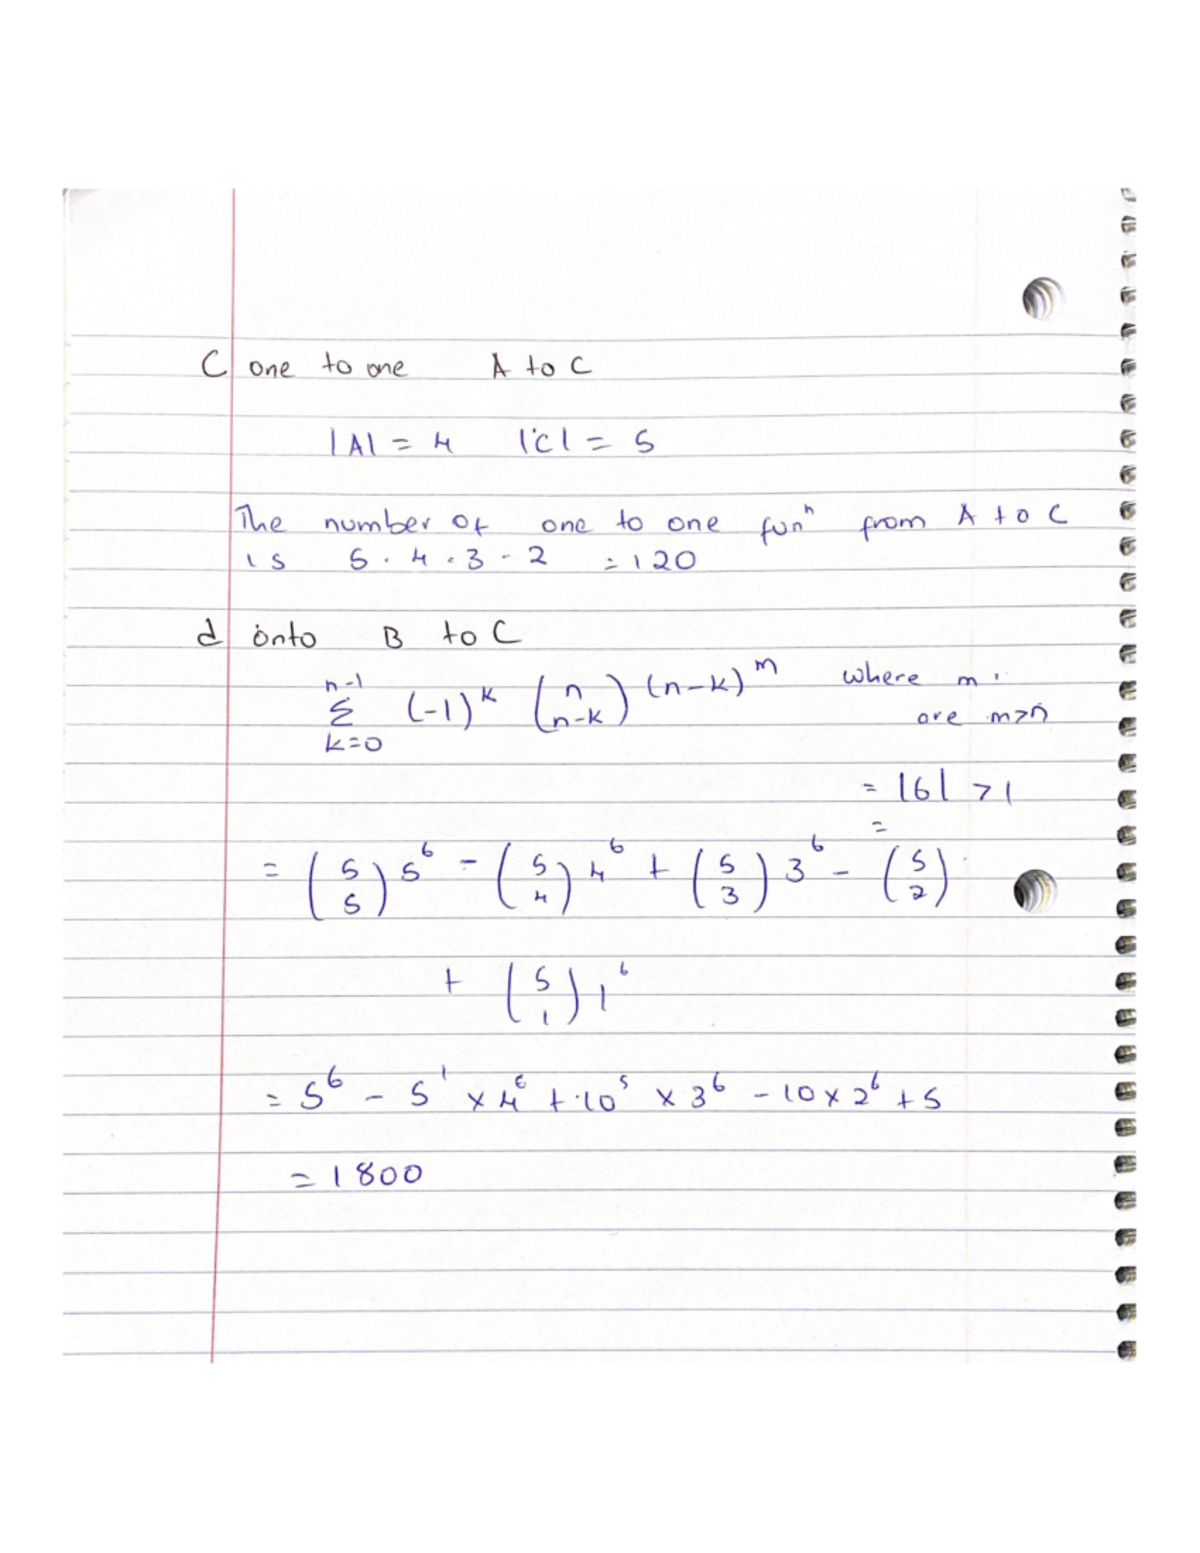 C one to one A to C
|A| = 4 |C| = 5
The number of one to one funⁿ from A to C
is 5 . 4 . 3 . 2 = 120
d onto B to C
n-1
Σ (-1)^k (n n-k) (n-k)^m where m
k=0 are m>n
= |6| > |
=
= (5 5) 5^6 - (5 4) 4^6 + (5 3) 3^6 - (5 2)
+ (5 1) 1^6
= 5^6 - 5^1 × 4^6 + 10^5 × 3^6 - 10 × 2^6 + 5
= 1800